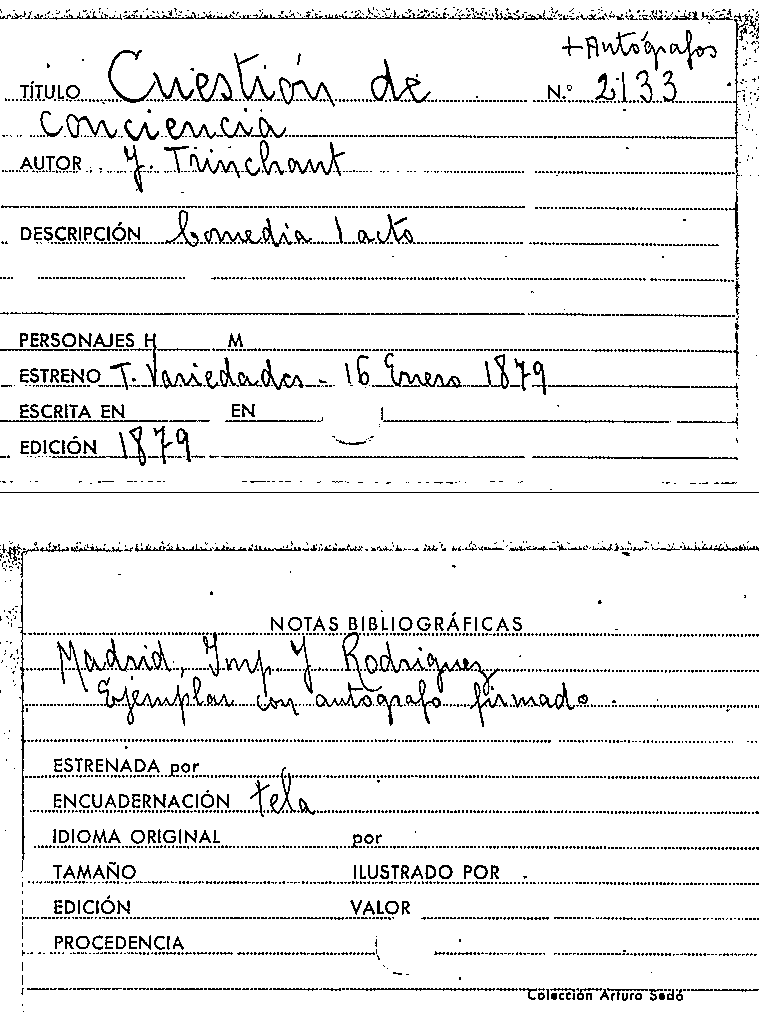 +Autógrafos
TÍTULO Cuestión de N.º 2133
conciencia
AUTOR J. Trinchant
DESCRIPCIÓN Comedia 1 acto
PERSONAJES H M
ESTRENO T. Variedades - 16 Enero 1879
ESCRITA EN EN
EDICIÓN 1879
NOTAS BIBLIOGRÁFICAS
Madrid, Imp. J Rodriguez
Ejemplar con autógrafo firmado.
ESTRENADA por
ENCUADERNACIÓN tela
IDIOMA ORIGINAL por
TAMAÑO ILUSTRADO POR
EDICIÓN VALOR
PROCEDENCIA
Colección Arturo Sedó